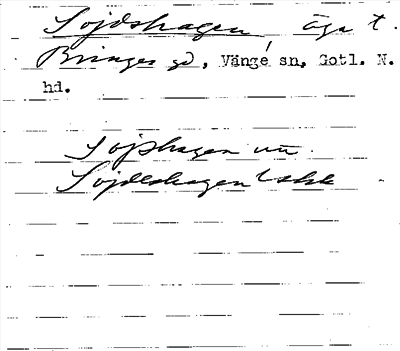 Söjdshagen äga t.
Bringes gd, Vänge sn, Gotl. N.
hd.
Söjshagen un
Söjdeshagen Uskk